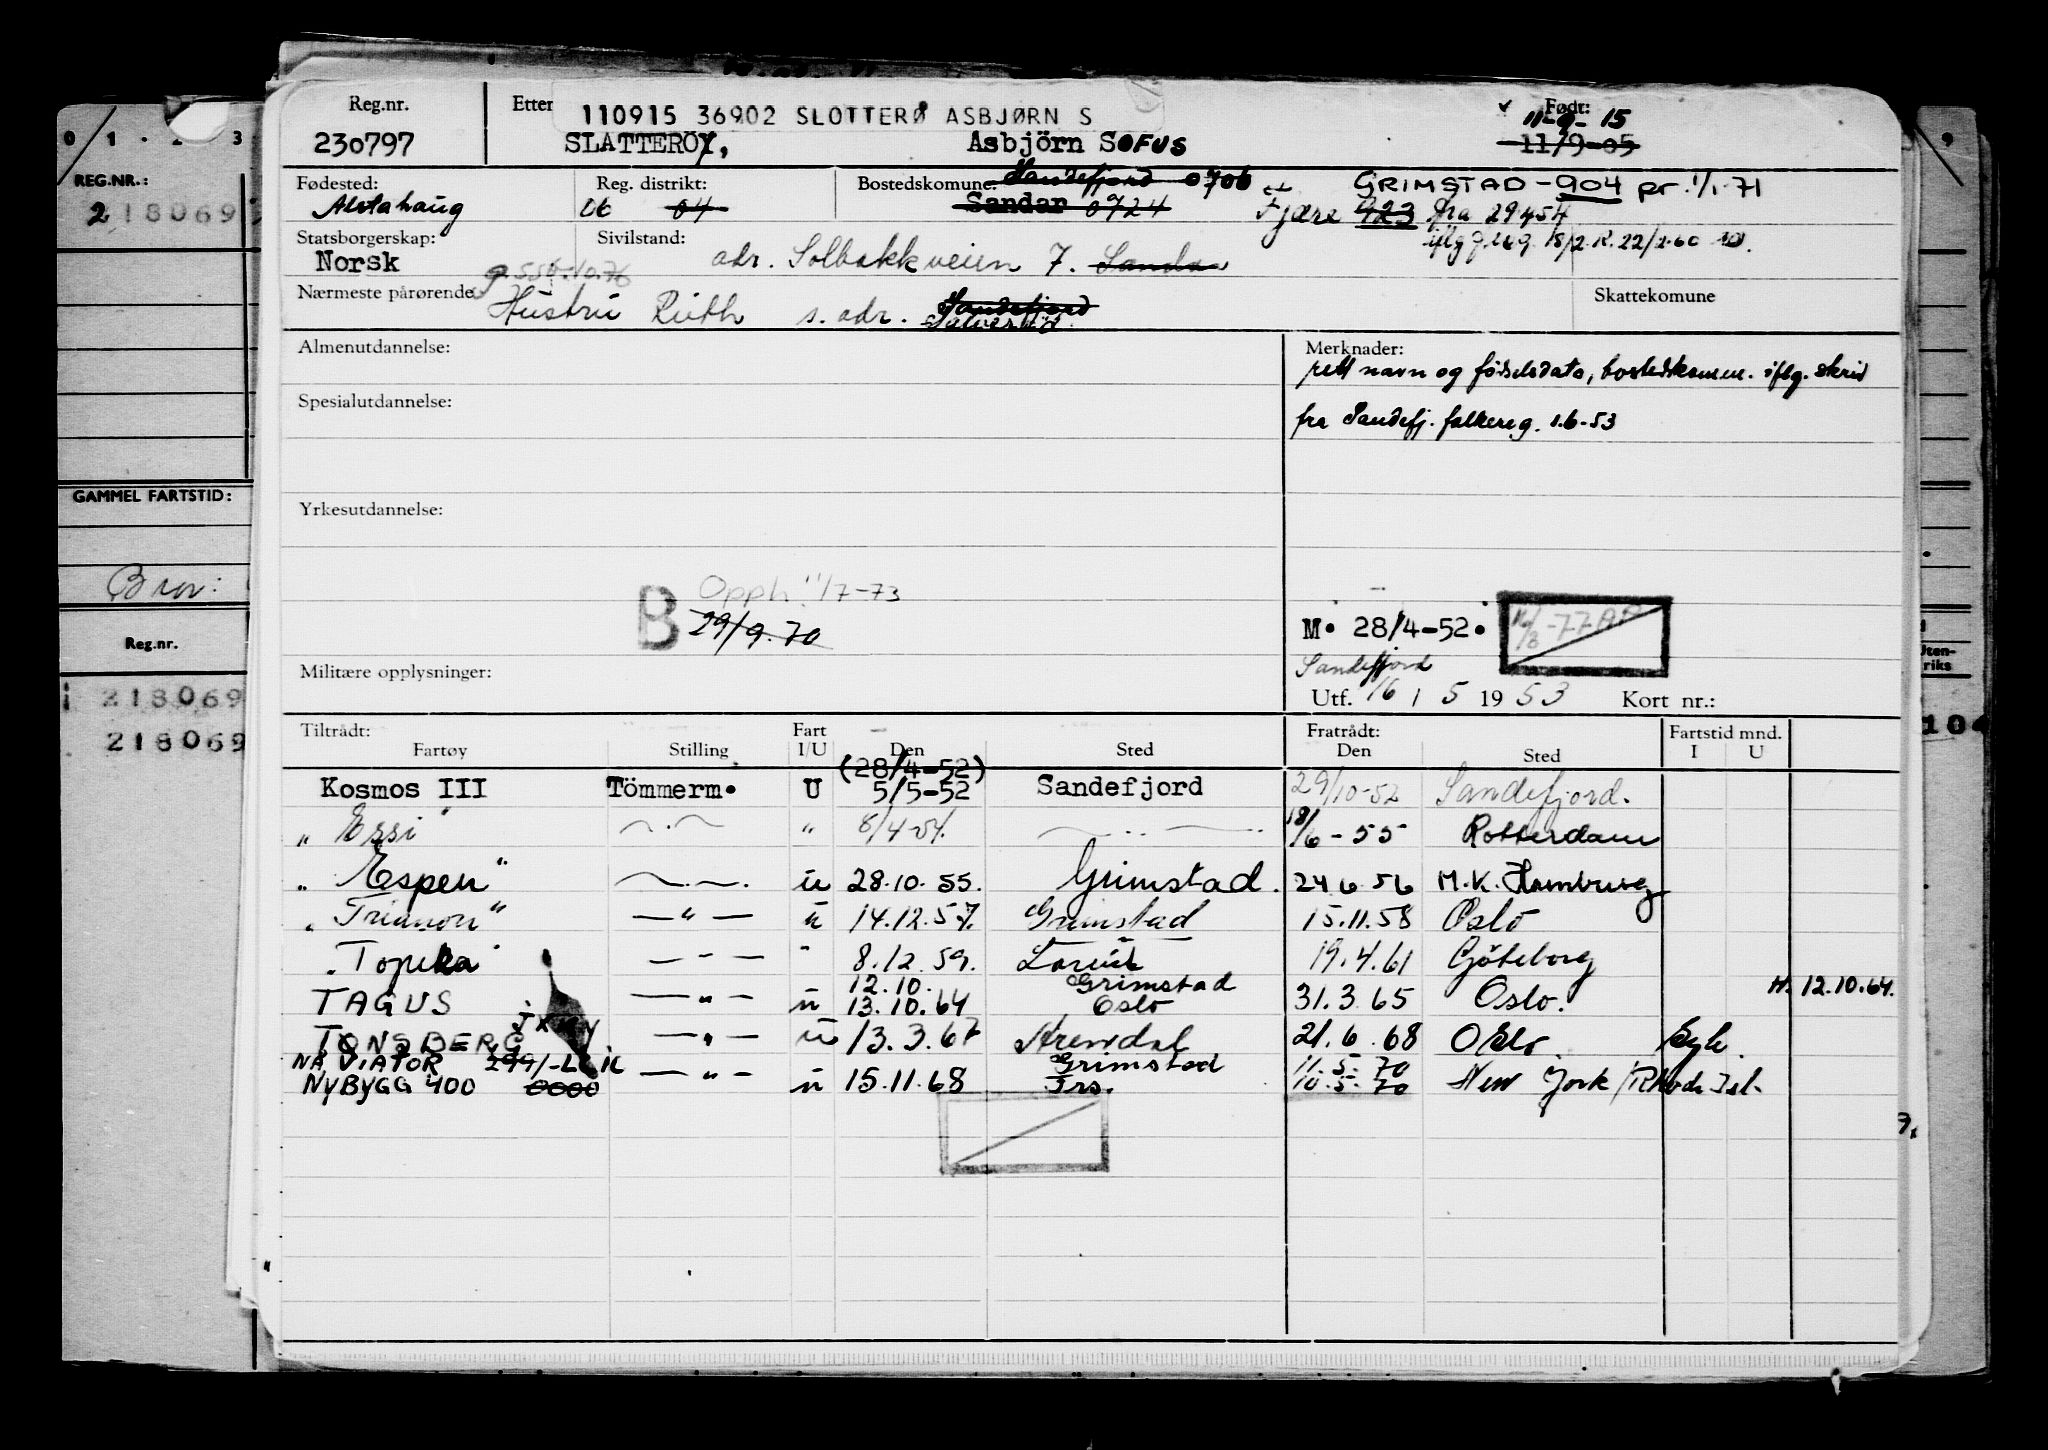 Reg.nr. Etter 110915 36902 SLOTTERØ ASBJØRN S Født:
11-9-15
230797 SLATTERÖY, Asbjörn SOFUS 11/9-05
Fødested: Reg. distrikt: Bostedskomune: Sandefjord 0706 GRIMSTAD-904 pr. 1/1-71
Alstahaug 06 04 Sandar 0724 Fjære 923 fra 29454
Statsborgerskap: Sivilstand:
Norsk adr. Solbakkveien 7. Sandar
Nærmeste pårørende Skattekomune
Hustru Ruth s. adr. Sandefjord
Almenutdannelse: Merknader:
rett navn og fødselsdato, bostedskomm. iflg. skriv
Spesialutdannelse:
fra Sandefj. folkereg. 1.6-53
Yrkesutdannelse:
Opph. 11/7-73
B 29/9.70
M. 28/4-52.
Sandefjord
Militære opplysninger:
Utf. 16 / 5 1953 Kort nr.:
Tiltrådt: Fart Fratrådt: Fartstid mnd.
Fartøy Stilling I/U Den Sted Den Sted I U
(28/4-52)
Kosmos III Tömmerm. U 5/5-52 Sandefjord 29/10-52 Sandefjord.
"Essi" " 8/4-54. 18/6-55 Rotterdam
"Espen" u 28.10.55. Grimstad. 24.6.56 M.K. Hamburg
"Trianon" — " — u 14.12.57. Grimstad 15.11.58 Oslo
"Topeka" — " — " 8.12.59. Larvik 19.4.61 Göteborg
12.10. Grimstad H. 12.10.64.
TAGUS — " — u 13.10.64 Oslo 31.3.65 Oslo.
TØNSBERG JXMY — " — u 13.3.67 Arendal 21.6.68 Oslo. Syk.
NÅ VIATOR 299/-LEIC Grimstad 11.5.70
NYBYGG 400 0000 — " — u 15.11.68 Frs. 10.5.70 New York/Rhode Isl.
0 1 - 2 3
REG.NR.:
2 218069
GAMMEL FARTSTID:
Brev:
Reg.nr.
218069
218069
9
Uten-
riks
104